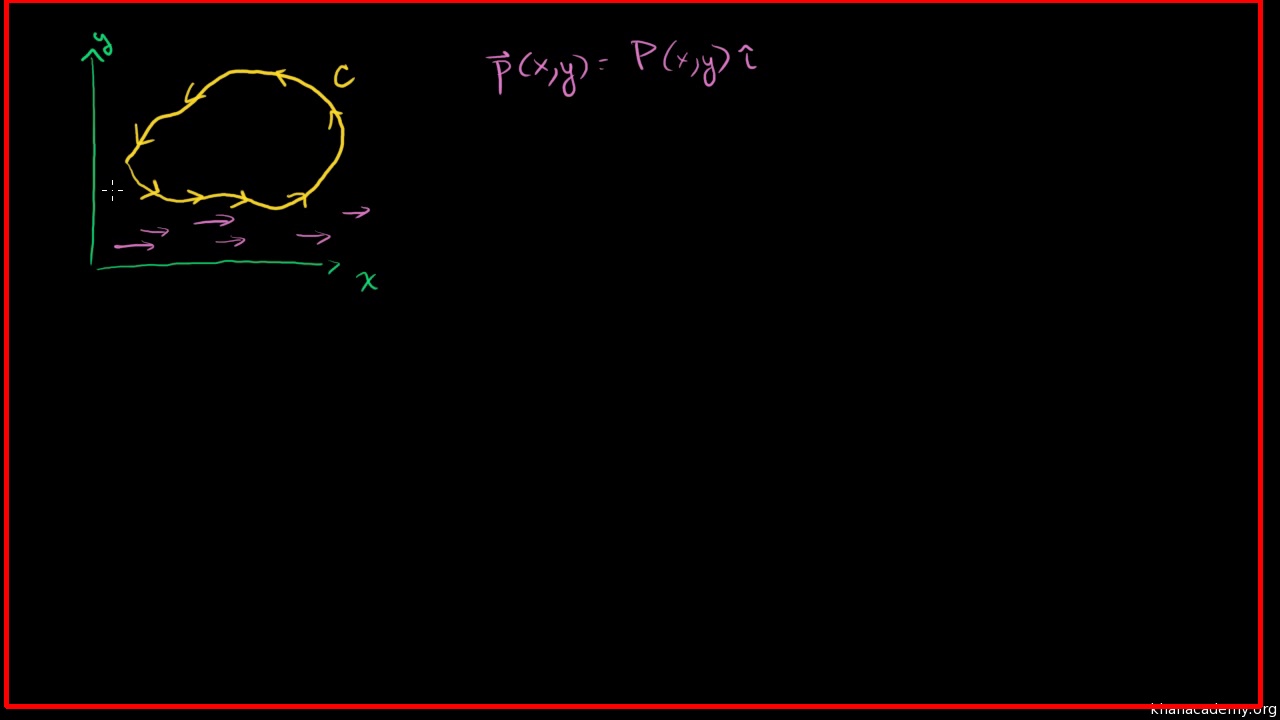 y
C
p⃗(x,y) = P(x,y) î
x
khanacademy.org